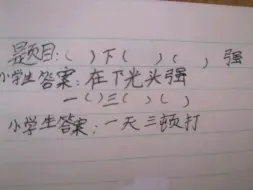 题目:( )下( )( )强
小学生答案:在下光头强
一( )三( )( )
小学生答案:一天三顿打